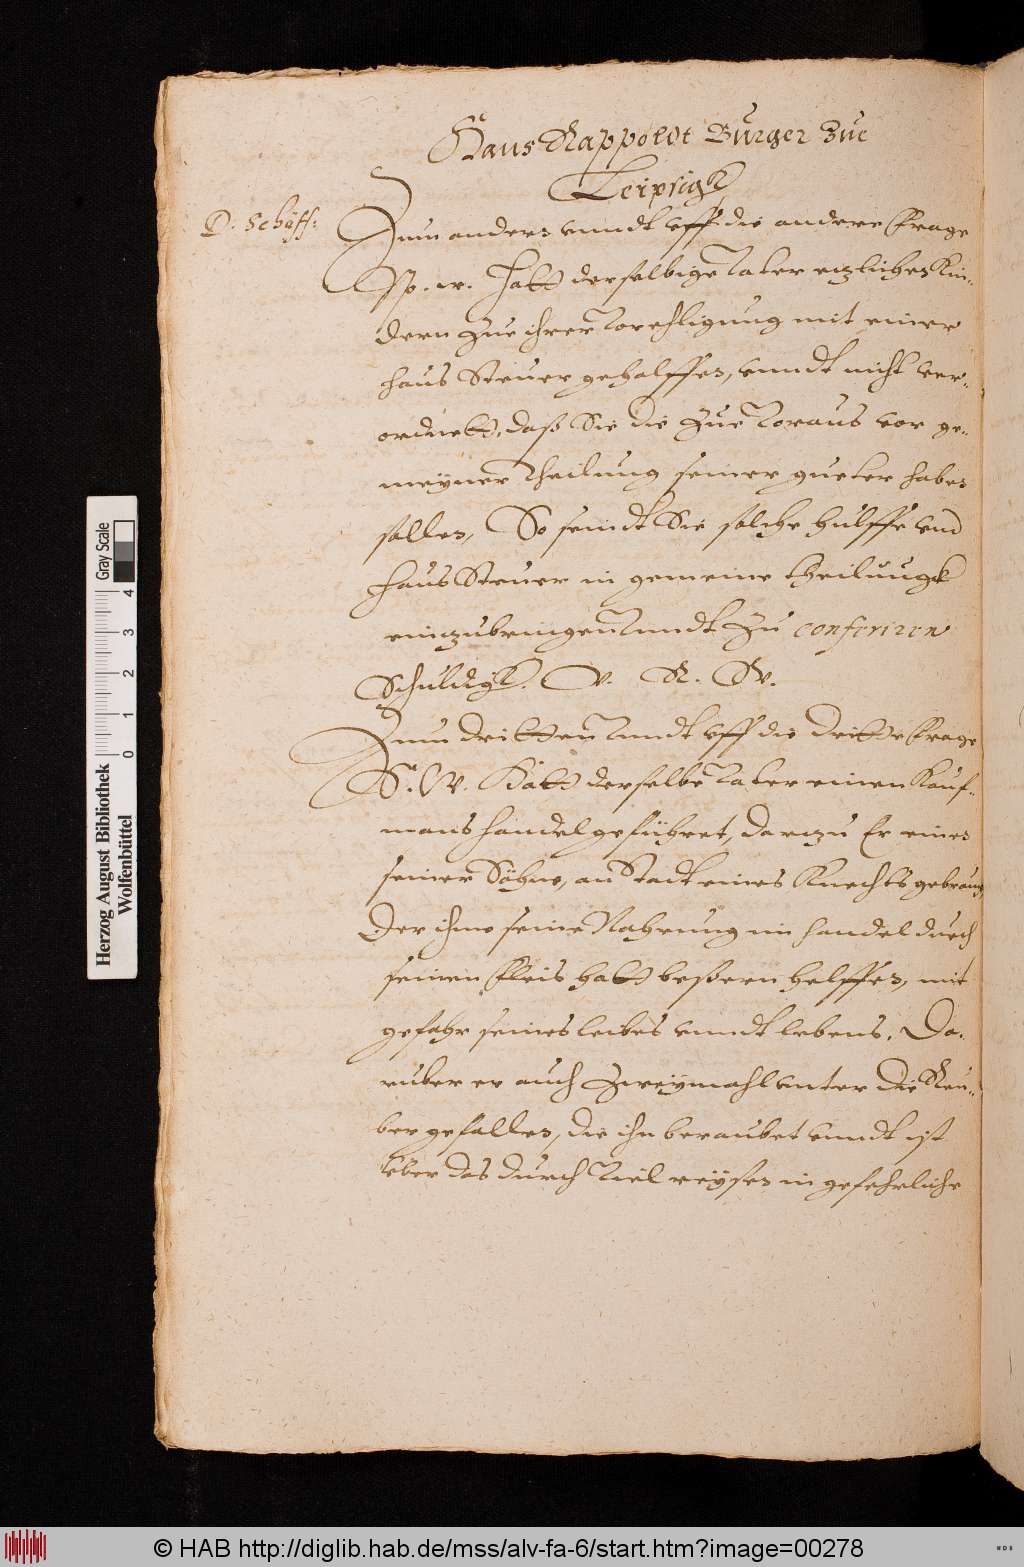 Hans Rappoldt Burger Zue
Leipsigk
D. Schäff:
Zum andern vnndt vff die andere Frage
Sp. w. Hatt derselbige Vater etzlichen Kin-
dern zue ihrer Vorehligung mit einer
haus Steuer geholffen, vnndt nicht ver-
ordnett, daß Sie die zue Voraus vor ge-
meyner Theilung seiner gueter haben
sollen, So seindt Sie solche hulffe vnd
haus Steuer in gemeine theilungk
einzubringen Vnndt zu conferiren
Schuldigk. V. R. W.
Zum dritten Vnndt vff die dritte Frage
S. W. Hatt derselbe Vater einen Kauf-
mans handel geführet, darzu Er einen
seiner Söhne, an Stadt eines Knechts gebraucht,
Der ihme seine Nahrung im handel durch
seinen Fleis hatt beßern helffen, mit
gefahr seines leibes vnndt lebens, Da-
ruber er auch Zweymahl vnter die Reu-
ber gefallen, die ihn beraubet vnndt ist
vber das durch Viel reysen in gefehrliche
Herzog August Bibliothek
Wolfenbüttel
Gray Scale
0 1 2 3 4
© HAB http://diglib.hab.de/mss/alv-fa-6/start.htm?image=00278